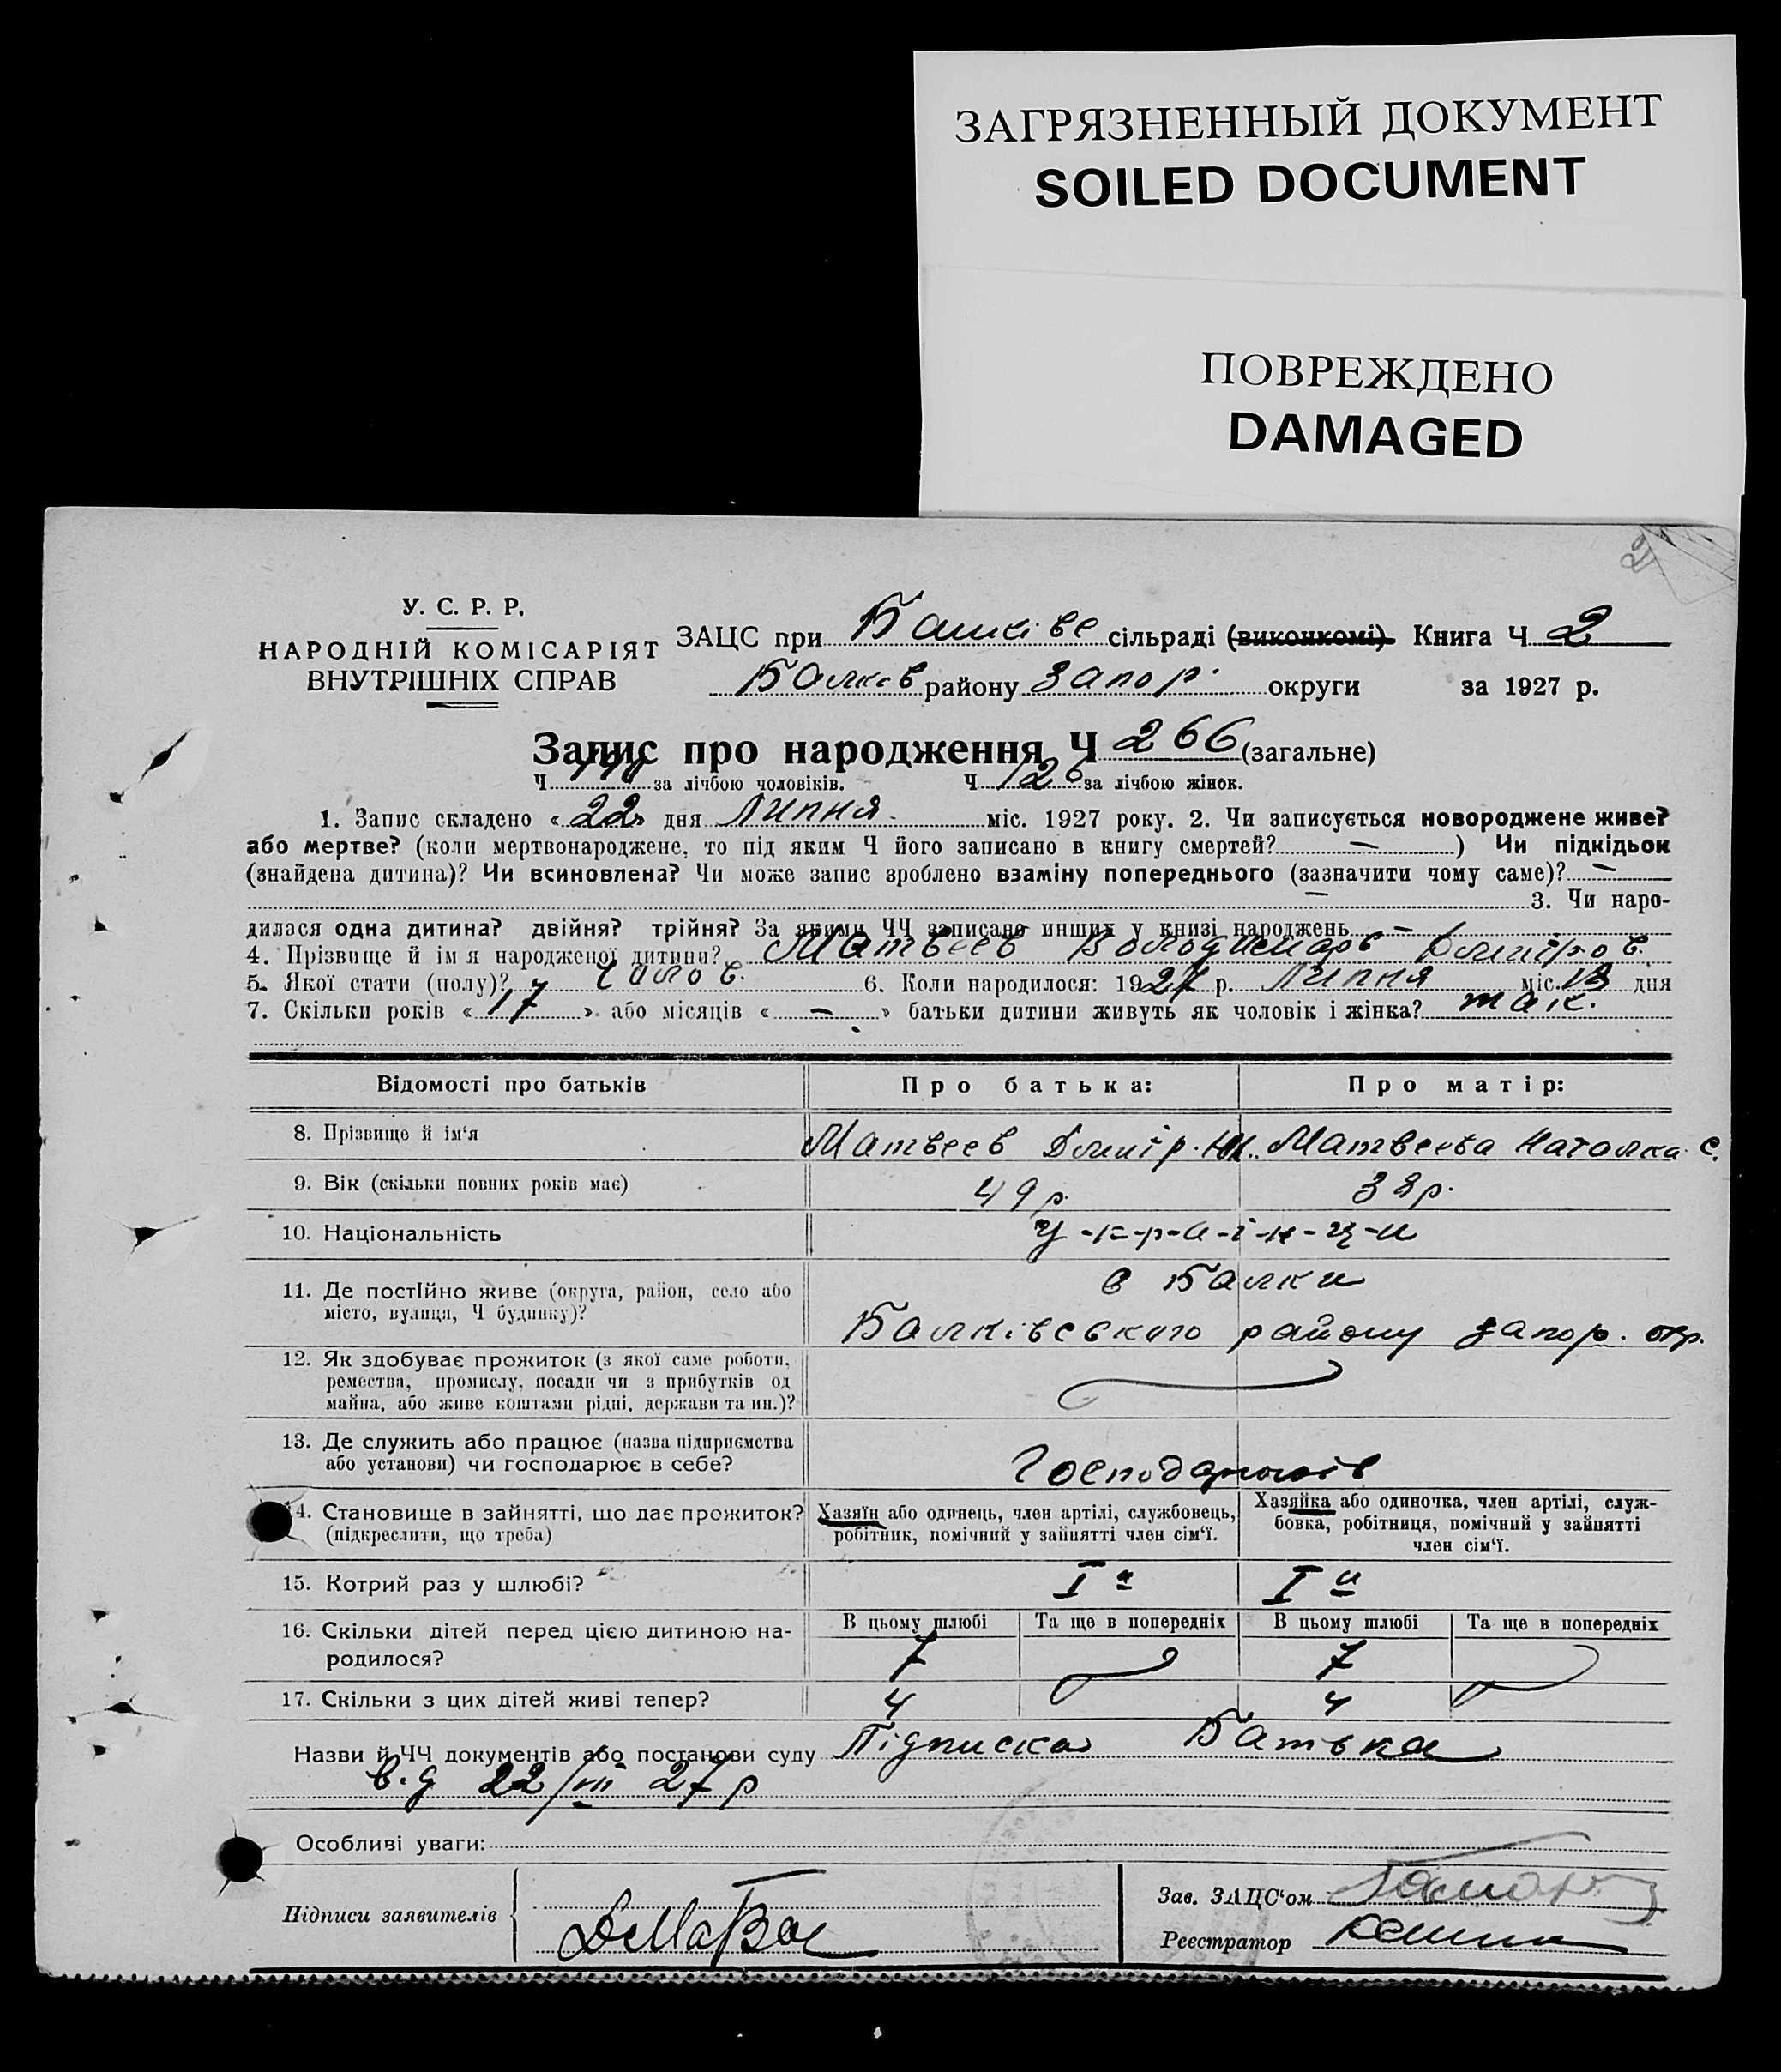 ЗАГРЯЗНЕННЫЙ ДОКУМЕНТ
SOILED DOCUMENT
ПОВРЕЖДЕНО
DAMAGED
У. С. Р. Р.
НАРОДНІЙ КОМІСАРІЯТ
ВНУТРІШНІХ СПРАВ
ЗАЦС при сільраді (виконкомі) Книга Ч 2
Балків району Запор. округи за 1927 р.
Запис про народження Ч 266 (загальне)
Ч за лічбою чоловіків. Ч 126 за лічбою жінок.
1. Запис складено «22» дня Липня міс. 1927 року. 2. Чи записується новороджене живе?
або мертве? (коли мертвонароджене, то під яким Ч його записано в книгу смертей? — ) Чи підкідьок
(знайдена дитина)? Чи всиновлена? Чи може запис зроблено взаміну попереднього (зазначити чому саме)? —
— 3. Чи наро-
дилася одна дитина? двійня? трійня? За якими ЧЧ записано инших у книзі народжень —
4. Прізвище й ім я народженої дитини? Матвеев Володимарь Дмитров.
5. Якої стати (полу)? чолов. 6. Коли народилося: 1927 р. Липня міс. 13 дня
7. Скільки років «17» або місяців « — » батьки дитини живуть як чоловік і жінка? так.
Відомості про батьків Про батька: Про матір:
8. Прізвище й ім‘я Матвеев Дмитр. Матвеева Наталка С.
9. Вік (скільки повних років має) 49 р. 38 р.
10. Національність У-к-р-а-ї-н-ц-и
11. Де постійно живе (округа, район, село або
місто, вулиця, Ч будинку)?
в Балки
Балківського району Запор. окр.
12. Як здобуває прожиток (з якої саме роботи,
ремества, промислу, посади чи з прибутків од
майна, або живе коштами рідні, держави та ин.)?
13. Де служить або працює (назва підприємства
або установи) чи господарює в себе?
14. Становище в зайнятті, що дає прожиток?
(підкреслити, що треба)
Хазяїн або одинець, член артілі, службовець,
робітник, помічний у зайнятті член сім‘ї.
Хазяйка або одиночка, член артілі, служ-
бовка, робітниця, помічний у зайнятті
член сім‘ї.
15. Котрий раз у шлюбі? I й I й
16. Скільки дітей перед цією дитиною на-
родилося?
В цьому шлюбі Та ще в попередніх В цьому шлюбі Та ще в попередніх
7 7
17. Скільки з цих дітей живі тепер? 4 4
Назви й ЧЧ документів або постанови суду Підписка Батька
в.д 22/VII 27 р
Особливі уваги:
Підписи заявителів
Зав. ЗАЦС‘ом
Реєстратор